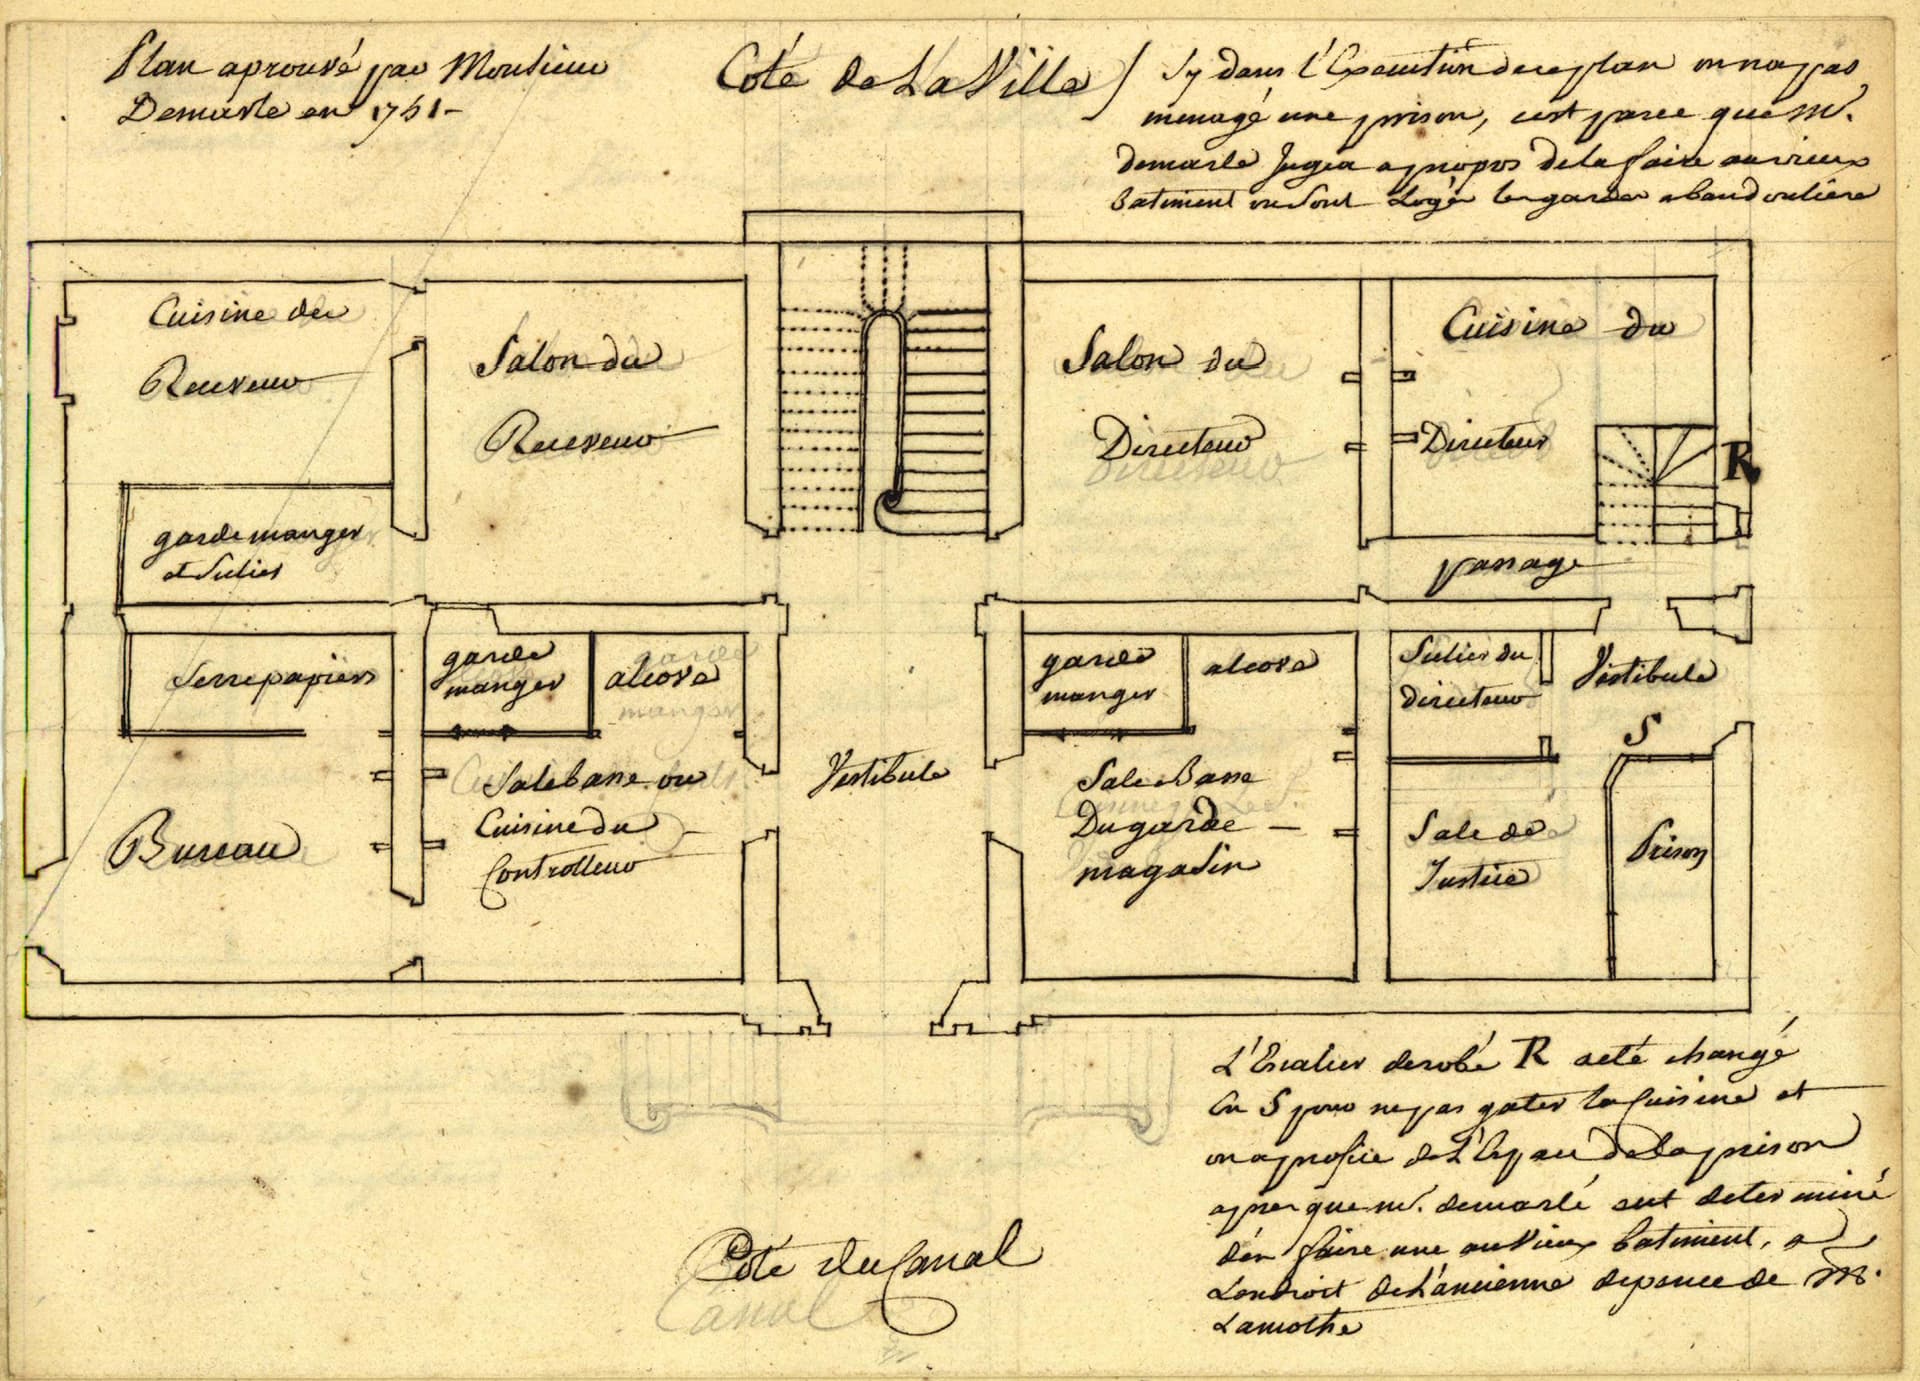 Plan aprouvé par Monsieur
Demasle en 1751-
Coté de La Ville
Sy dans l'Execution de ce plan on n'a pas
menagé une prison, c'est parce que Mr.
demasle Jugea apropos de la faire au vieux
batiment ou sont Logés les gardes abandouliere
Cuisine du
Receveur
Salon du
Receveur
Salon du
Directeur
Cuisine du
Directeur
R
garde manger
et Sulier
passage
Serre papiers
garde
manger
alcove
garde
manger
alcove
Sulier du
directeur
Vestibule
S
Bureau
Sale basse ou
Cuisine du
Controlleur
Vestibule
Sale Basse
Du garde
magasin
Sale de
Justice
Prison
L'Escalier derobé R a eté changé
En S pour ne pas gater la Cuisine et
on a profité de L'Espace de la prison
apres que mr. demaslé s'est determiné
d'en faire une au Vieux batiment, a
L'endroit de L'ancienne depence de Mr.
Lamothe
Coté du Canal
Canal